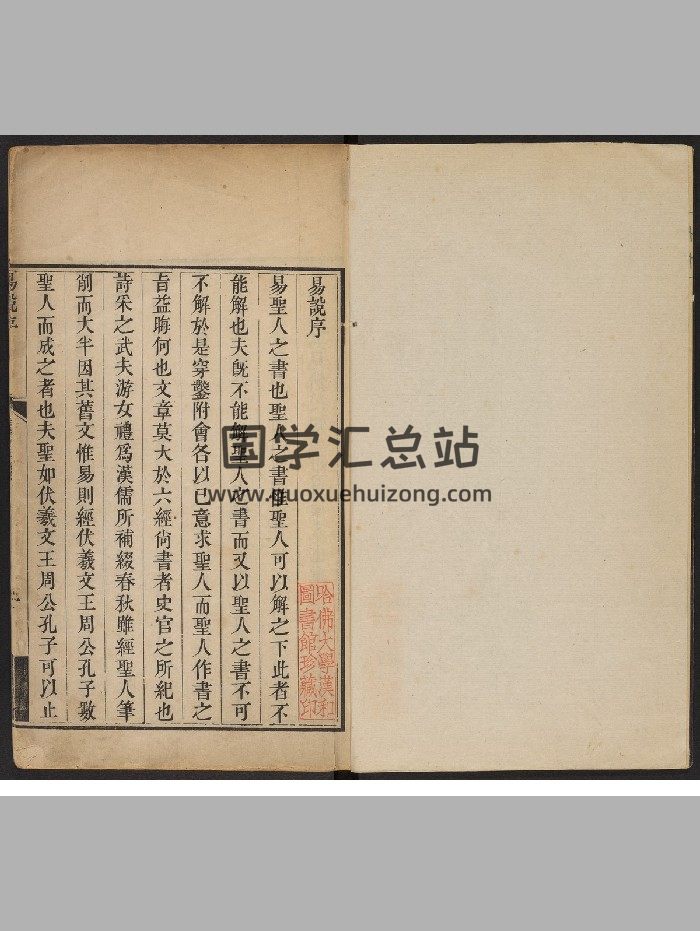 易說序
易聖人之書也聖人之書惟聖人可以解之下此者不
能解也夫旣不能解聖人之書而又以聖人之書不可
不解於是穿鑿附會各以己意求聖人而聖人作書之
旨益晦何也文章莫大於六經尙書者史官之所紀也
詩采之武夫游女禮爲漢儒所補綴春秋雖經聖人筆
削而大半因其舊文惟易則經伏羲文王周公孔子數
聖人而成之者也夫聖如伏羲文王周公孔子可以止
易說序
哈佛大學漢和
圖書館珍藏印
国学汇总站
www.guoxuehuizong.com